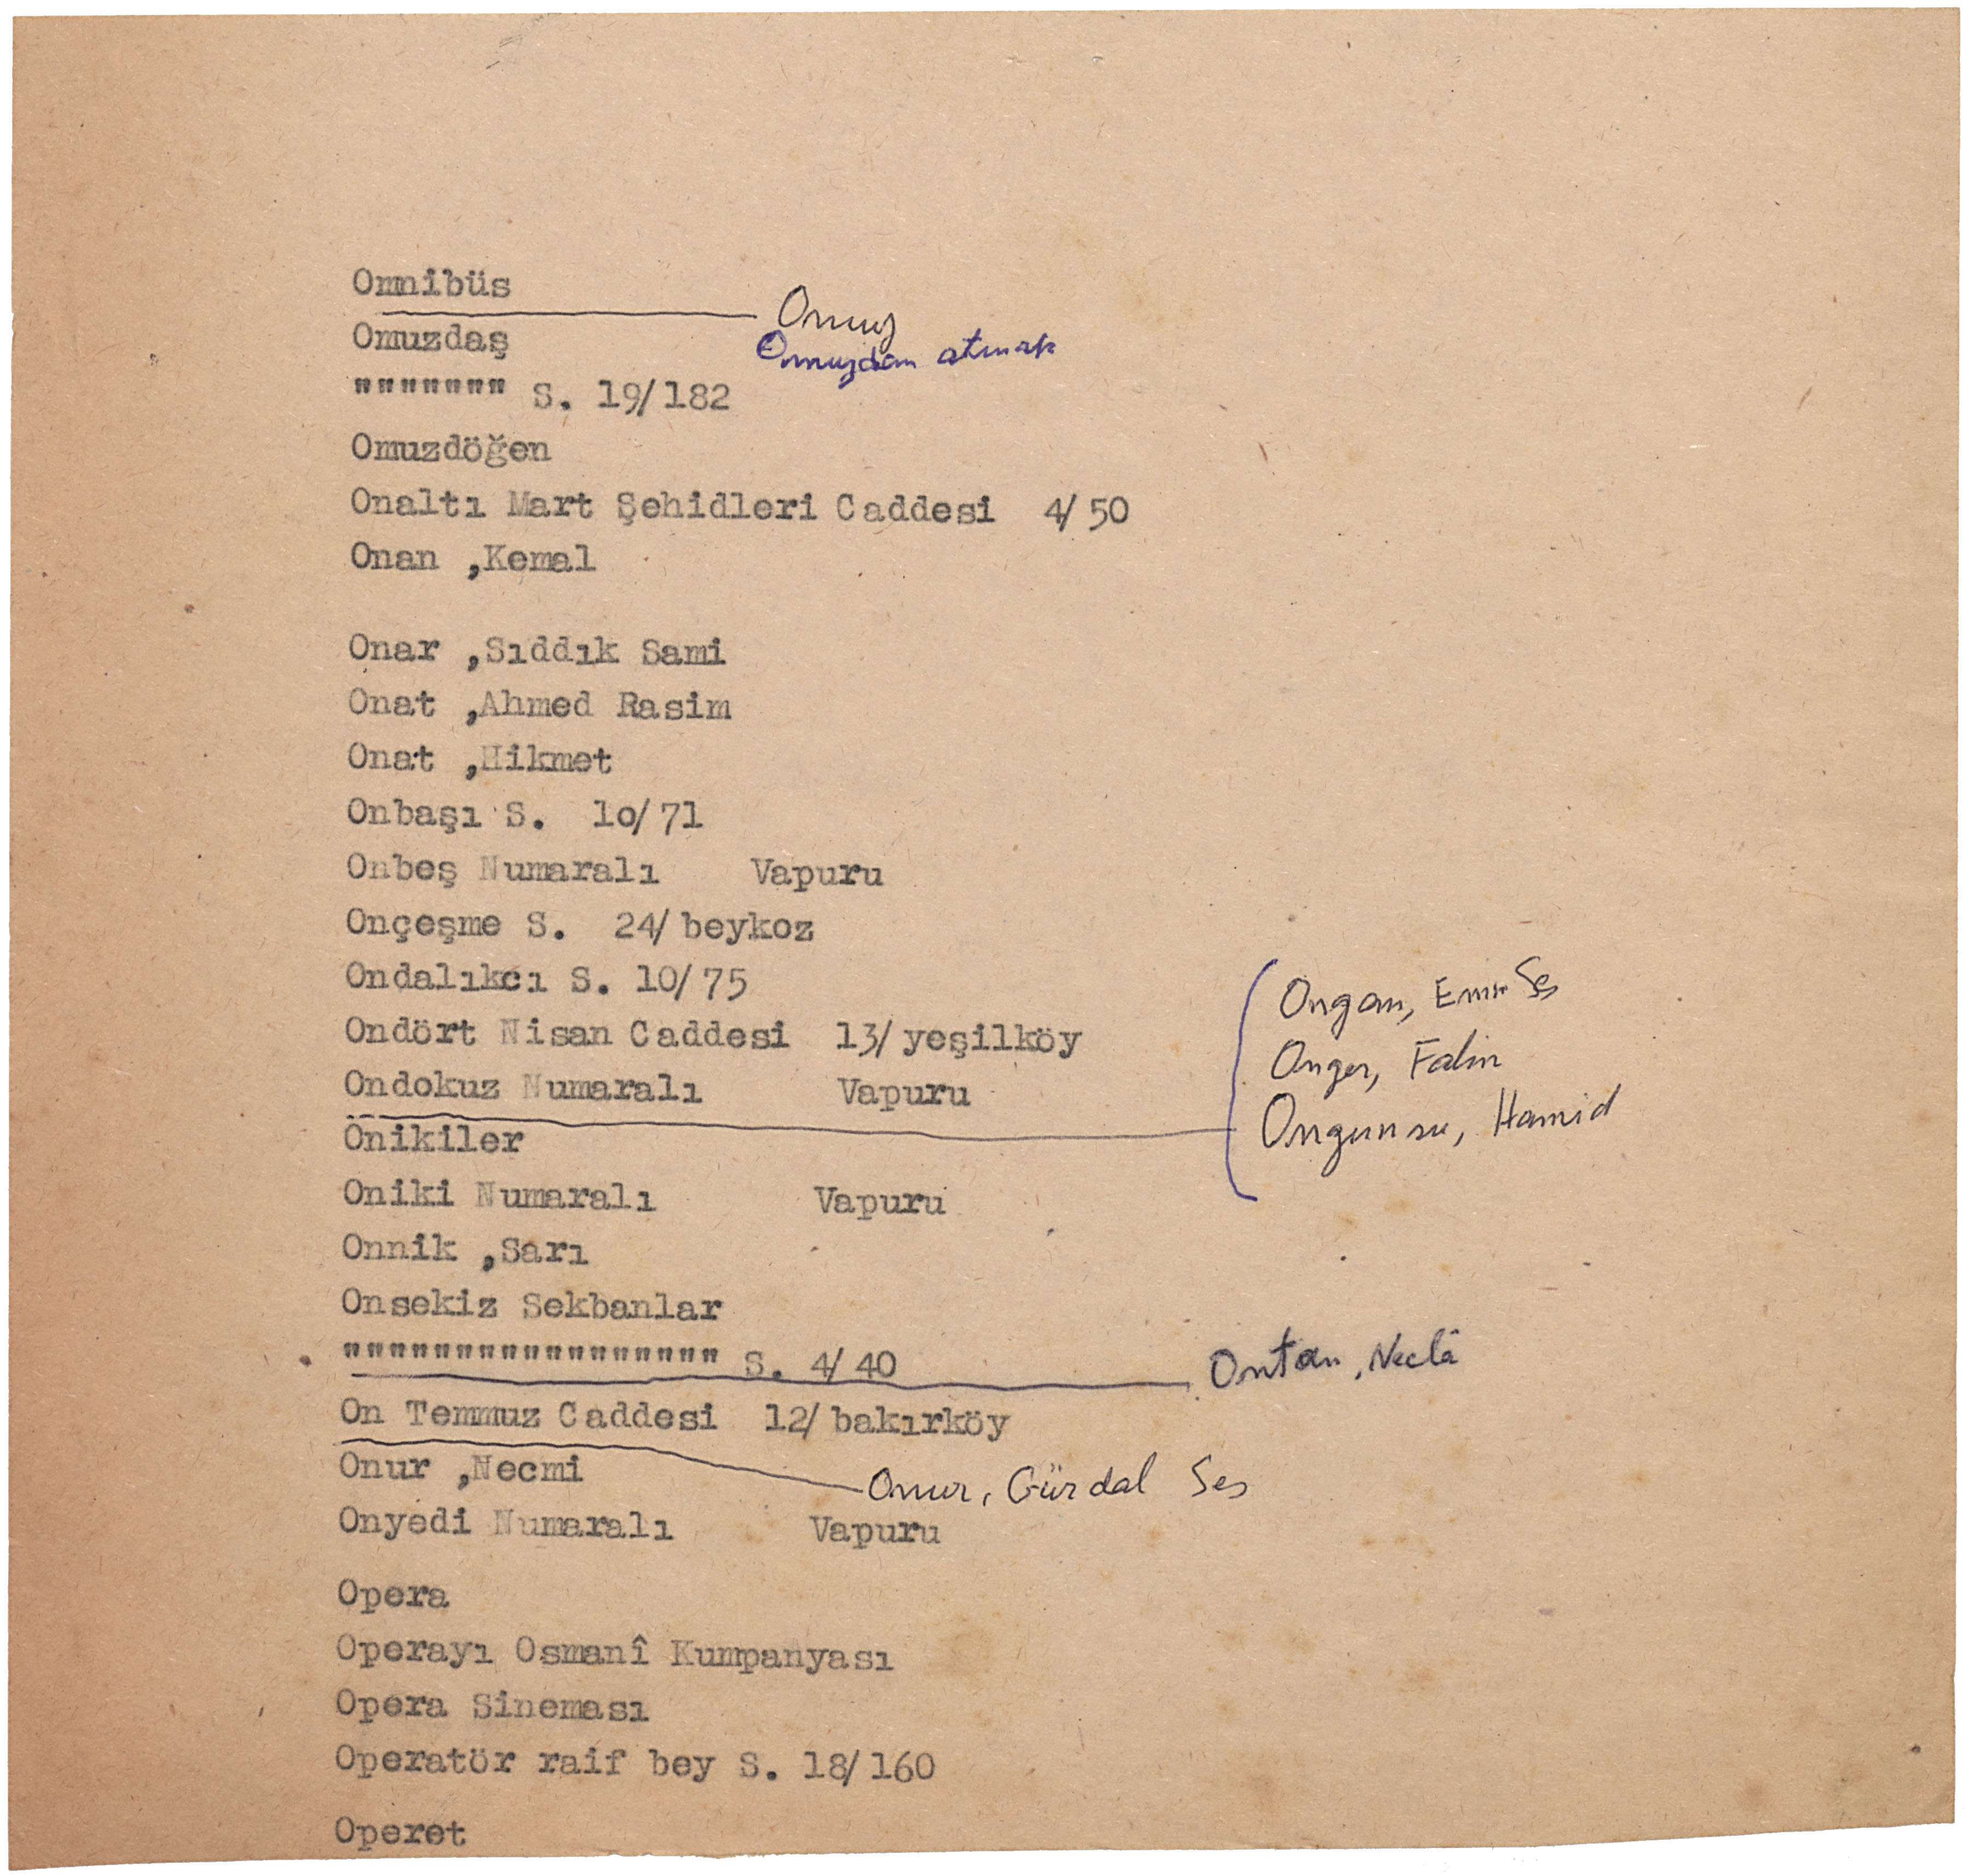 Omnibüs
Omuz
Omuzdan atmak
Omuzdaş
""""""" S. 19/182
Omuzdöğen
Onaltı Mart Şehidleri Caddesi 4/50
Onan ,Kemal
Onar ,Sıddık Sami
Onat ,Ahmed Rasim
Onat ,Hikmet
Onbaşı S. lo/71
Onbeş Numaralı Vapuru
Onçeşme S. 24/beykoz
Ondalıkcı S. 10/75
Ondört Nisan Caddesi 13/yeşilköy
Ondokuz Numaralı Vapuru
Ongan, Emin Ses
Onger, Fahir
Ongunsu, Hamid
Onikiler
Oniki Numaralı Vapuru
Onnik ,Sarı
Onsekiz Sekbanlar
""""""""""""""""" S. 4/40
Ontan, Neclâ
On Temmuz Caddesi 12/bakırköy
Onur, Gürdal Ses
Onur ,Necmi
Onyedi Numaralı Vapuru
Opera
Operayı Osmanî Kumpanyası
Opera Sineması
Operatör raif bey S. 18/160
Operet